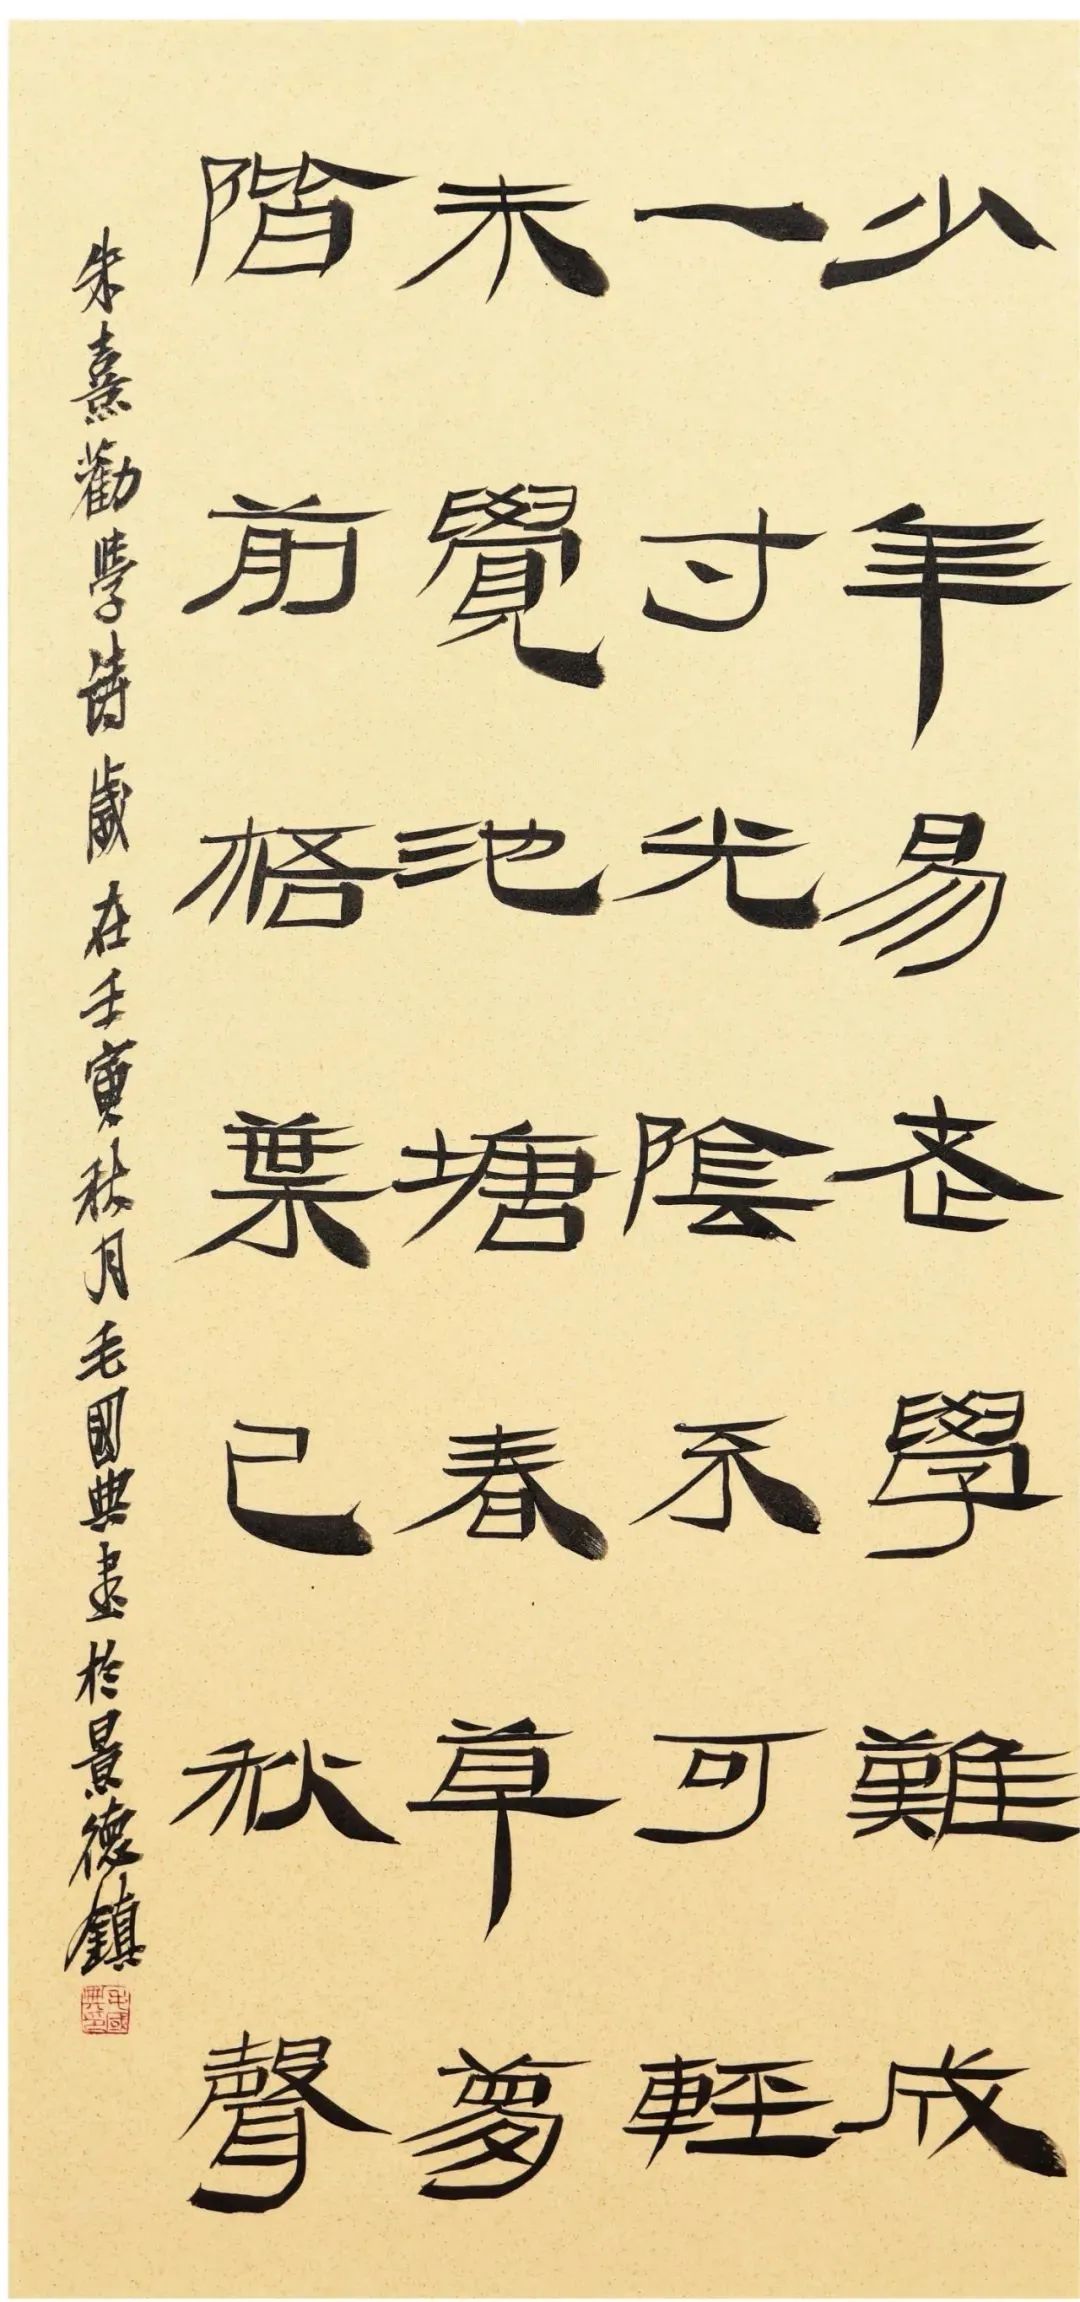 少年易老學難成
一寸光陰不可輕
未覺池塘春草夢
階前梧葉已秋聲
朱熹勸學詩歲在壬寅秋月毛國典書於景德鎮
毛國典印